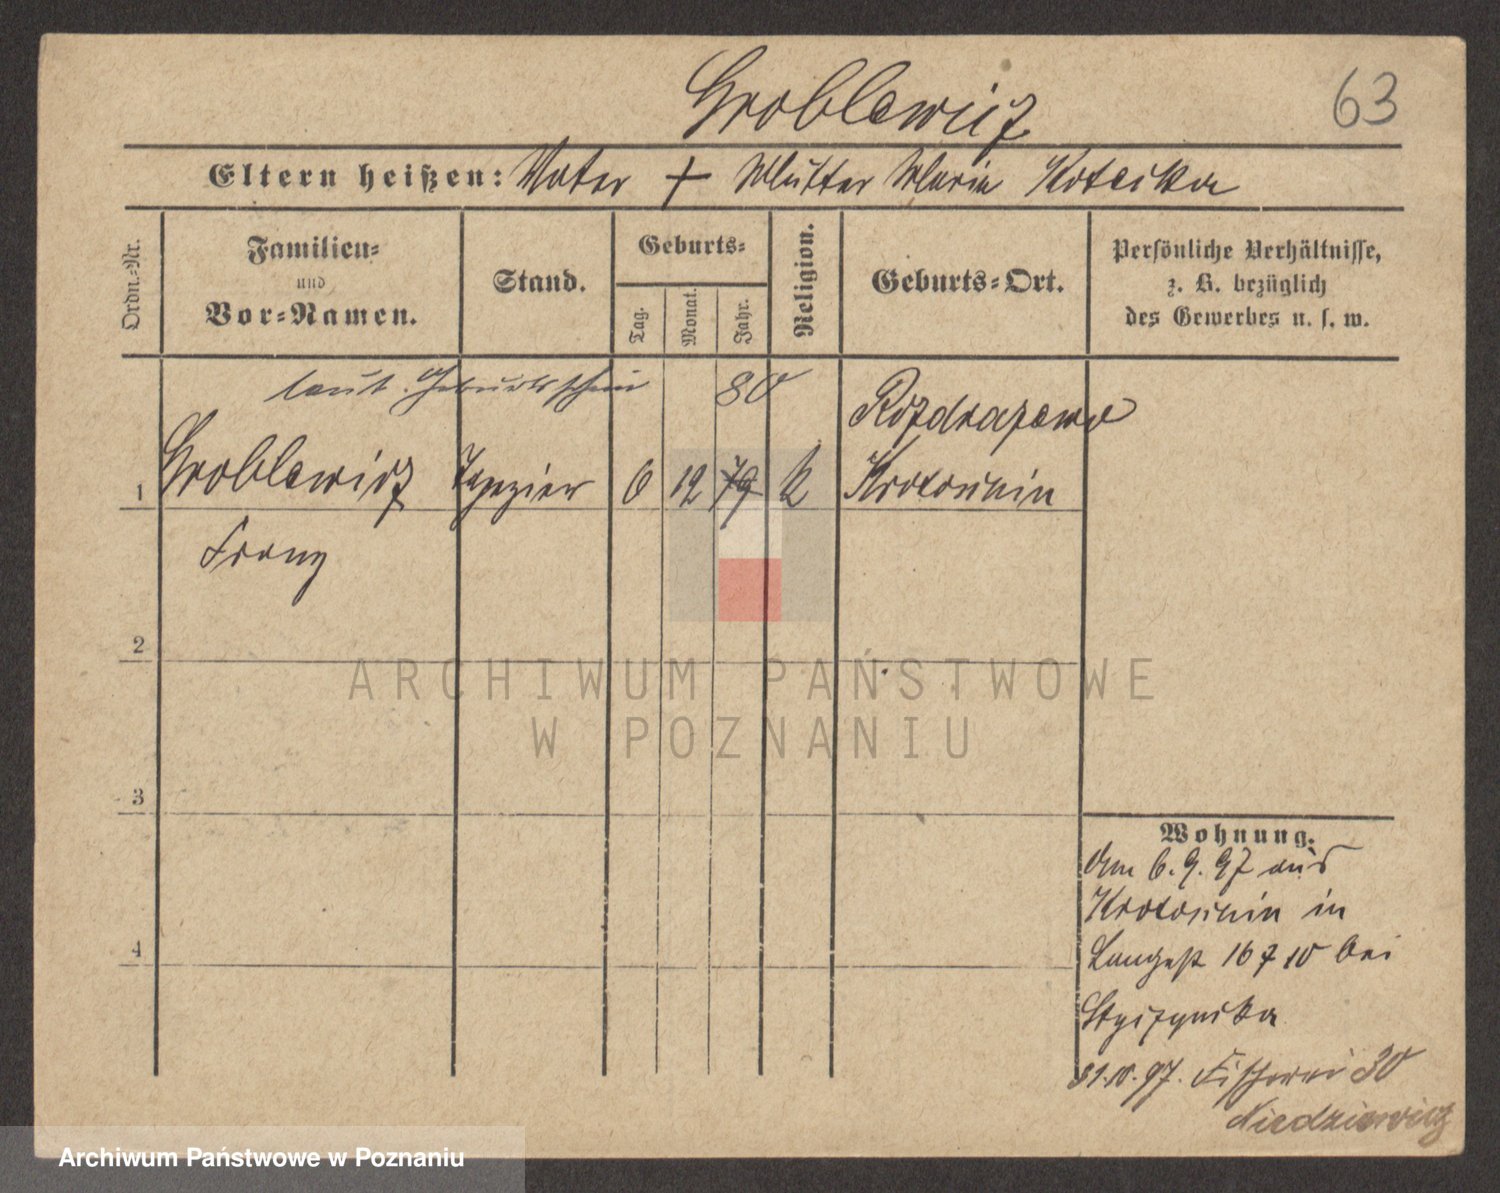 Groblewicz
63
Eltern heißen: Vater + Mutter Maria Koteska
Ordn.-Nr.
Familien-
und
Vor-Namen.
Stand.
Geburts-
Tag.
Monat.
Jahr.
Religion.
Geburts-Ort.
Persönliche Verhältnisse,
z. B. bezüglich
des Gewerbes u. s. w.
laut Geburtsschein 80
Rozdrazewo
1 Groblewicz Tapezier 6 12 79 k Krotoschin
Franz
2
3
4
Wohnung.
den 6. 9. 97 aus
Krotoschin in
Langestr 16 z 10 bei
31.10.97. Fischerei 30
Niedziewicz
ARCHIWUM PAŃSTWOWE
W POZNANIU
Archiwum Państwowe w Poznaniu